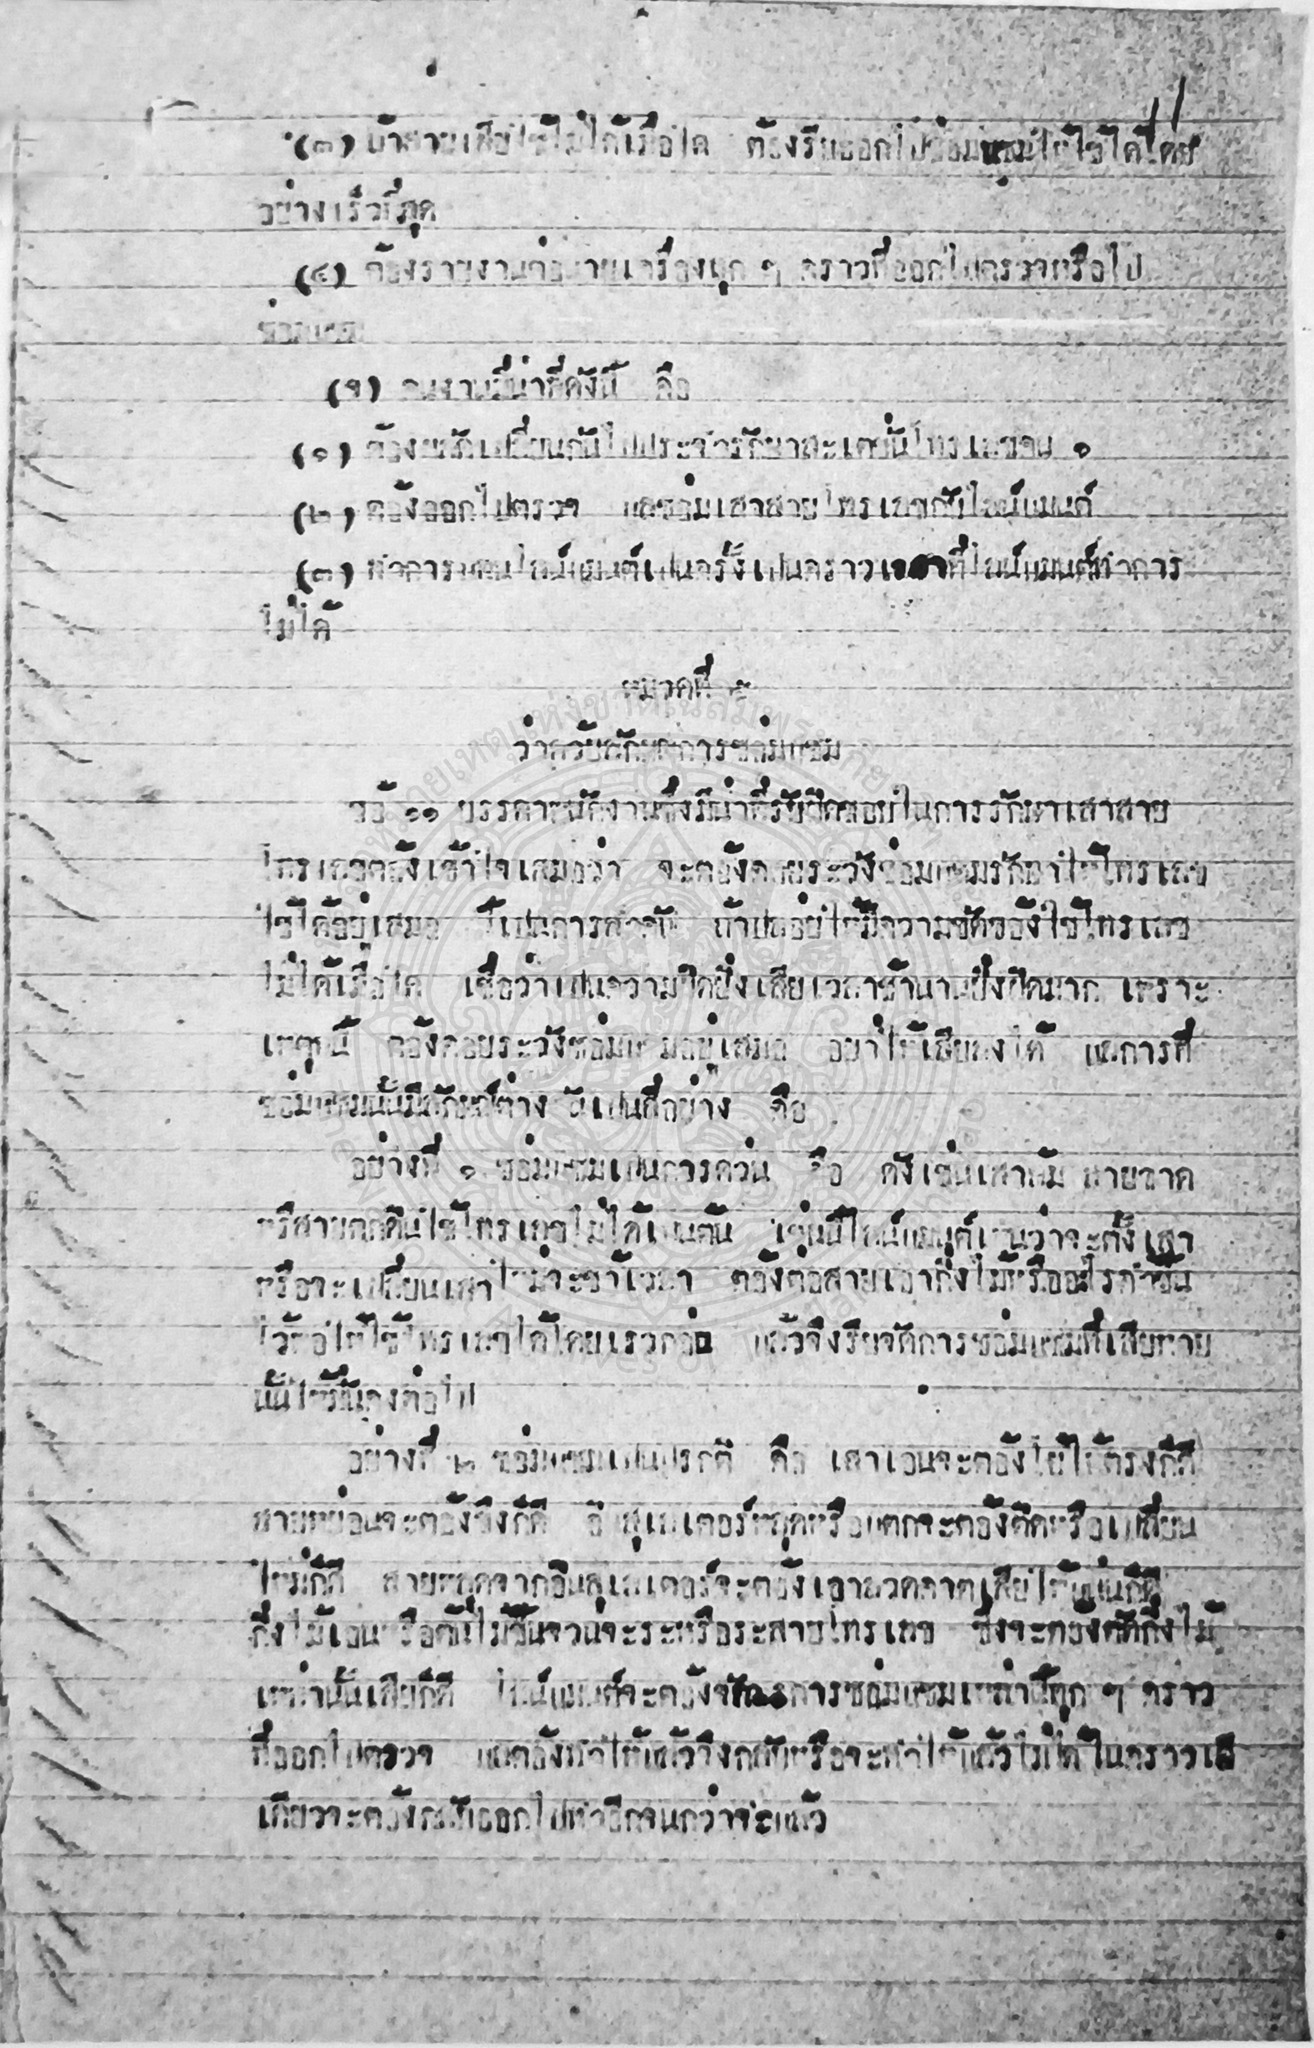 11
(๓) ถ้าสายเสียใช้ไม่ได้เมื่อใด ต้องรีบออกไปซ่อมแซมให้ใช้ได้โดย
อย่างเร็วที่สุด
(๔) ต้องรายงานต่อนายเครื่องทุก ๆ คราวที่ออกไปตรวจหรือไป
ซ่อมแซม
(จ) คนงานมีน่าที่ดังนี้ คือ
(๑) ต้องผลัดเปลี่ยนกันไปประจำรักษาสะเตชั่นโทรเลขคน ๑
(๒) ต้องออกไปตรวจ แลซ่อมเสาสายโทรเลขกับไลน์แมนด์
(๓) ทำการแทนไลน์แมนด์เปนครั้งเปนคราวเวลาที่ไลน์แมนด์ทำการ
ไม่ได้
หมวดที่ ๕
ว่าด้วยลักษณการซ่อมแซม
ข้อ ๑๑ บรรดาพนักงานซึ่งมีน่าที่รับผิดชอบในการรักษาเสาสาย
โทรเลขต้องเข้าใจเสมอว่า จะต้องคอยระวังซ่อมแซมรักษาให้โทรเลข
ใช้ได้อยู่เสมอ นี้เปนการสำคัญ ถ้าปล่อยให้มีความขัดข้องใช้โทรเลข
ไม่ได้เมื่อใด เชื่อว่าเปนความผิดยิ่งเสียเวลาช้านานยิ่งผิดมาก เพราะ
เหตุนี้ ต้องคอยระวังซ่อมแซมอยู่เสมอ อย่าให้เสียลงได้ แลการที่
ซ่อมแซมนั้นมีลักษณต่างกันเปนสี่อย่าง คือ
อย่างที่ ๑ ซ่อมแซมเปนการด่วน คือ ดังเช่นเสาล้ม สายขาด
หรือสายตกดินใช้โทรเลขไม่ได้เปนต้น เช่นนี้ไลน์แมนด์เห็นว่าจะตั้งเสา
หรือจะเปลี่ยนเสาใหม่จะช้าเวลา ต้องต่อสายเอากิ่งไม้หรืออะไรค้ำขึ้น
ไว้ก่อให้ใช้โทรเลขได้โดยเรวก่อน แล้วจึงรีบจัดการซ่อมแซมที่เสียหาย
นั้นให้มั่นคงต่อไป
อย่างที่ ๒ ซ่อมแซมเปนปรกติ คือ เสาเอนจะต้องให้ให้ตรงก็ดี
สายหย่อนจะต้องขึงก็ดี อินสุเลเตอร์หลุดหรือแตกจะต้องติดหรือเปลี่ยน
ใหม่ก็ดี สายหลุดจากอินสุเลเตอร์จะต้องเอาลวดคาดเสียให้แน่นก็ดี
กิ่งไม้เอนหรือต้นไม้ขึ้นจวนจะระหรือระสายโทรเลข ซึ่งจะต้องตัดกิ่งไม้
เหล่านั้นเสียก็ดี ไลน์แมนด์จะต้องจัดการซ่อมแซมเหล่านี้ทุก ๆ คราว
ที่ออกไปตรวจ แลต้องทำให้แล้วจึงกลับหรือจะทำให้แล้วไม่ได้ในคราว
เดียวจะต้องกลับออกไปทำอีกจนกว่าจะแล้ว